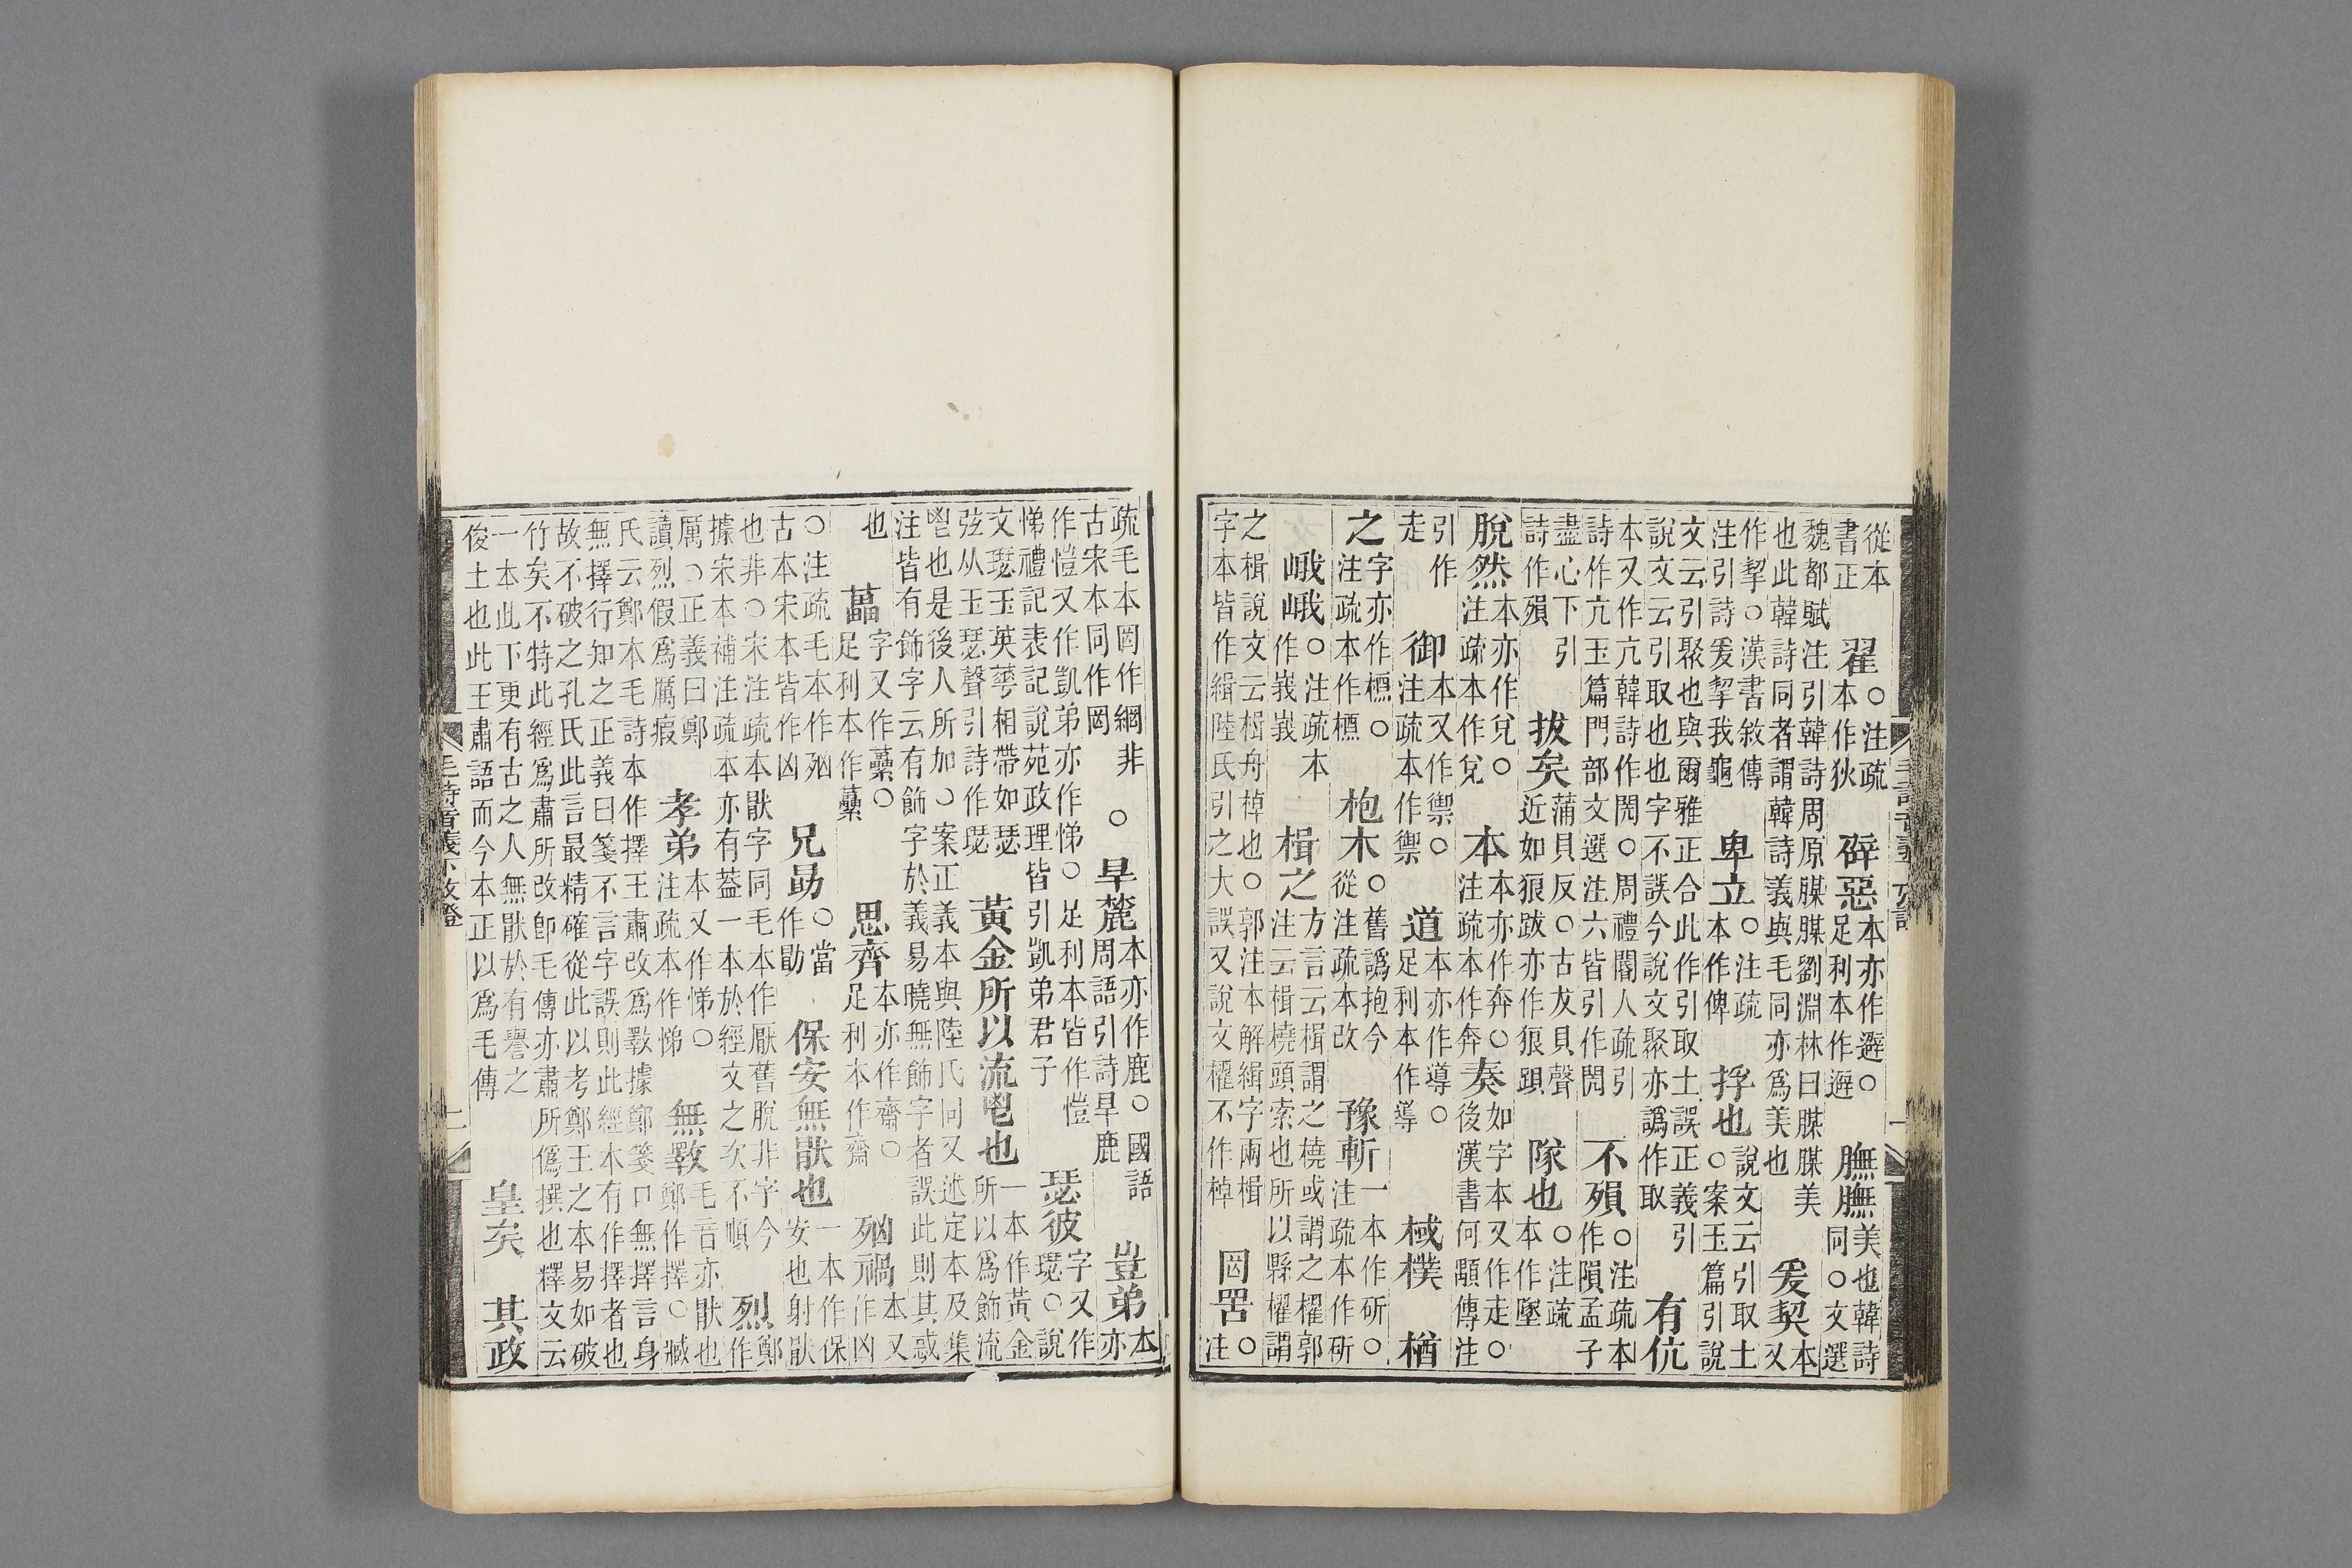 從本書正 翟○注疏本作狄 辟惡本亦作避○足利本作遯 膴膴美也韓詩同○文選
魏都賦注引韓詩周原腜腜劉淵林曰腜腜美也此韓詩同者謂韓詩義與毛同亦爲美也 爰契本又
作挈○漢書敘傳注引詩爰挈我龜 卑立○注疏本作俾 捊也說文云引取土○案玉篇引說
文云引聚也與爾雅正合此作引取土誤正義引說文云引取也也字不誤今說文聚亦譌作取 有伉
本又作亢韓詩作閌○周禮閽人疏引詩作亢玉篇門部文選注六皆引作閌 不殞○注疏本作隕孟子
盡心下引詩作殞 拔矣蒲貝反○古犮貝聲近如狼跋亦作狼跟 隊也○注疏本作墜
脫然本亦作兌○注疏本作兌 本本亦作奔○注疏本作奔 奏如字本又作走○後漢書何顒傳注
引作走 御本又作禦○注疏本作禦 道本亦作導○足利本作導 棫樸 槱
之字亦作槱○注疏本作槱 枹木○舊譌抱今從注疏本改 豫斬一本作斫○注疏本作斫
峨峨○注疏本作峩峩 楫之方言云楫謂之橈或謂之櫂郭注云楫橈頭索也所以縣櫂謂
之楫說文云楫舟棹也○郭注本解緝字兩楫字本皆作緝陸氏引之大誤又說文櫂不作棹 罔罟○注
疏毛本罔作綱非○古宋本同作罔 旱麓本亦作鹿○國語周語引詩旱鹿 豈弟本亦
作愷又作凱弟亦作悌○足利本皆作愷悌禮記表記說苑政理皆引凱弟君子 瑟彼字又作璱○說
文璱玉英華相帶如瑟弦从玉瑟聲引詩作璱 黃金所以流鬯也一本作黃金所以爲飾流
鬯也是後人所加○案正義本與陸氏同又述定本及集注皆有飾字云有飾字於義易曉無飾字者誤此則其惑
也 藟字又作虆○足利本作虆 思齊本亦作齋○足利本作齋 殈禍本又作凶
○注疏毛本作殈古本宋本皆作凶 兄勖○當作勖 保安無猒也一本作保安也射猒
也非○宋注疏本猒字同毛本作厭舊脫非字今據宋本補注疏本亦有葢一本於經文之次不順 烈鄭作
厲○正義曰鄭讀烈假爲厲瘕 孝弟本又作悌○注疏本作悌 無斁毛音亦猒也鄭作擇○臧
氏云鄭本毛詩本作擇王肅改爲斁據鄭箋口無擇言身無擇行知之正義曰箋不言字誤則此經本有作擇者也
故不破之孔氏此言最精確從此以考鄭王之本易如破竹矣不特此經爲肅所改卽毛傳亦肅所僞撰也釋文云
一本此下更有古之人無猒於有譽之俊士也此王肅語而今本正以爲毛傳 皇矣 其政
毛詩音義下攷證